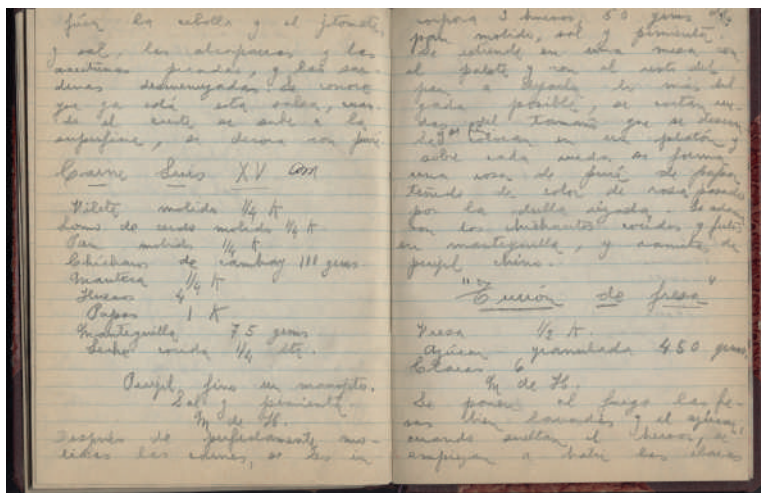 fríen la cebolla y el jitomate,
y sal, las alcaparras y las
aceitunas picadas, y las sar-
dinas desmenuzadas. Se conoce
que ya está esta salsa, cuan-
do el aceite se sube a la
superficie, se decora con
Carne Luis XV
Filete molido 1/4 K
Lomo de cerdo molido 1/4 K
Pan molido 1/4 K
Chícharo de cambray 111 grms
Manteca 1/4 K
Huevos 4
Papas 1 K
Mantequilla 75 grms
Leche cocida 1/4 ltr.
Perejil fino un manojito.
Sal y pimienta.
M de H.
Después de perfectamente mo-
lidas las carnes, se les in
corpora 3 huevos, 50 grms de
pan molido, sal y pimienta.
Se extiende en una mesa con
el palote y con el resto del
pan a dejarla lo más del
gada posible, se cortan rue-
das del tamaño que se desean
se colocan en un platón y
sobre cada rueda se forma
una rosa de puré de papa
teñido de color de rosa pasado
por la duilla rizada. Se adorna
con los chicharitos cocidos y fritos
en mantequilla, y ramitos de
perejil chino.
"Turrón de fresa"
Fresa 1/2 K.
Azúcar granulada 450 grms
Claras 6
M de H.
Se ponen al fuego las fre-
sas bien lavadas y el azúcar,
cuando sueltan el hervor, se
empiezan a batir las claras